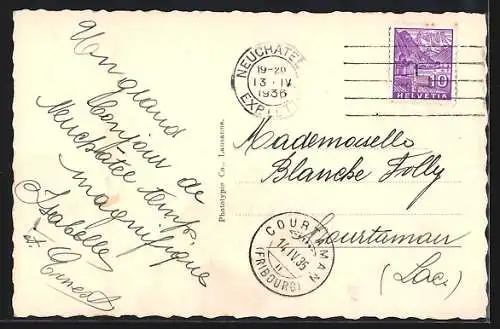 Un grand
bonjour de
Neuchâtel temps.
magnifique
Isabelle
et Ernest
Phototypie Co., Lausanne.
NEUCHATEL
19-20
13.IV
1936
EXP. LET
10
HELVETIA
Mademoiselle
Blanche Folly
Courtaman
(Lac.)
COURTAMAN
14.IV.36
(FRIBOURG)